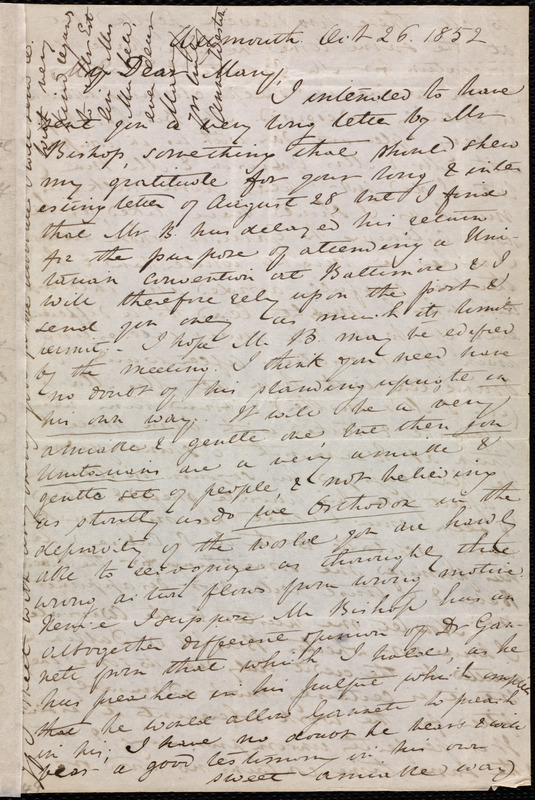 Weymouth Oct 26. 1852
My Dear Mary,
I intended to have
sent you a very long letter by Mr
Bishop, something that should shew
my gratitude for your long & inter
esting letter of August 28, but I find
that Mr B has delayed his return
for the purpose of attending a Uni-
tarian Convention at Baltimore & I
will therefore rely upon the post &
send you only as much as its limits
permit - I hope Mr B. may be edified
by the meeting. I think you need have
no doubt of his standing upright in
his own way. It will be a very
amiable & gentle one, but then you
Unitarians are a very amiable &
gentle set of people, & not believing
as stoutly as do we Orthodox in the
depravity of the world you are hardly
able to recognize as thoroughly that
wrong action flows from wrong motive.
Hence I suppose Mr Bishop has an
altogether different opinion of Dr Gan-
nett from that which I hold, as he
has preached in his pulpit which implies
that he would allow Gannett to preach
in his; I have no doubt he bears & will
bear a good testimony in his own
sweet amiable way)